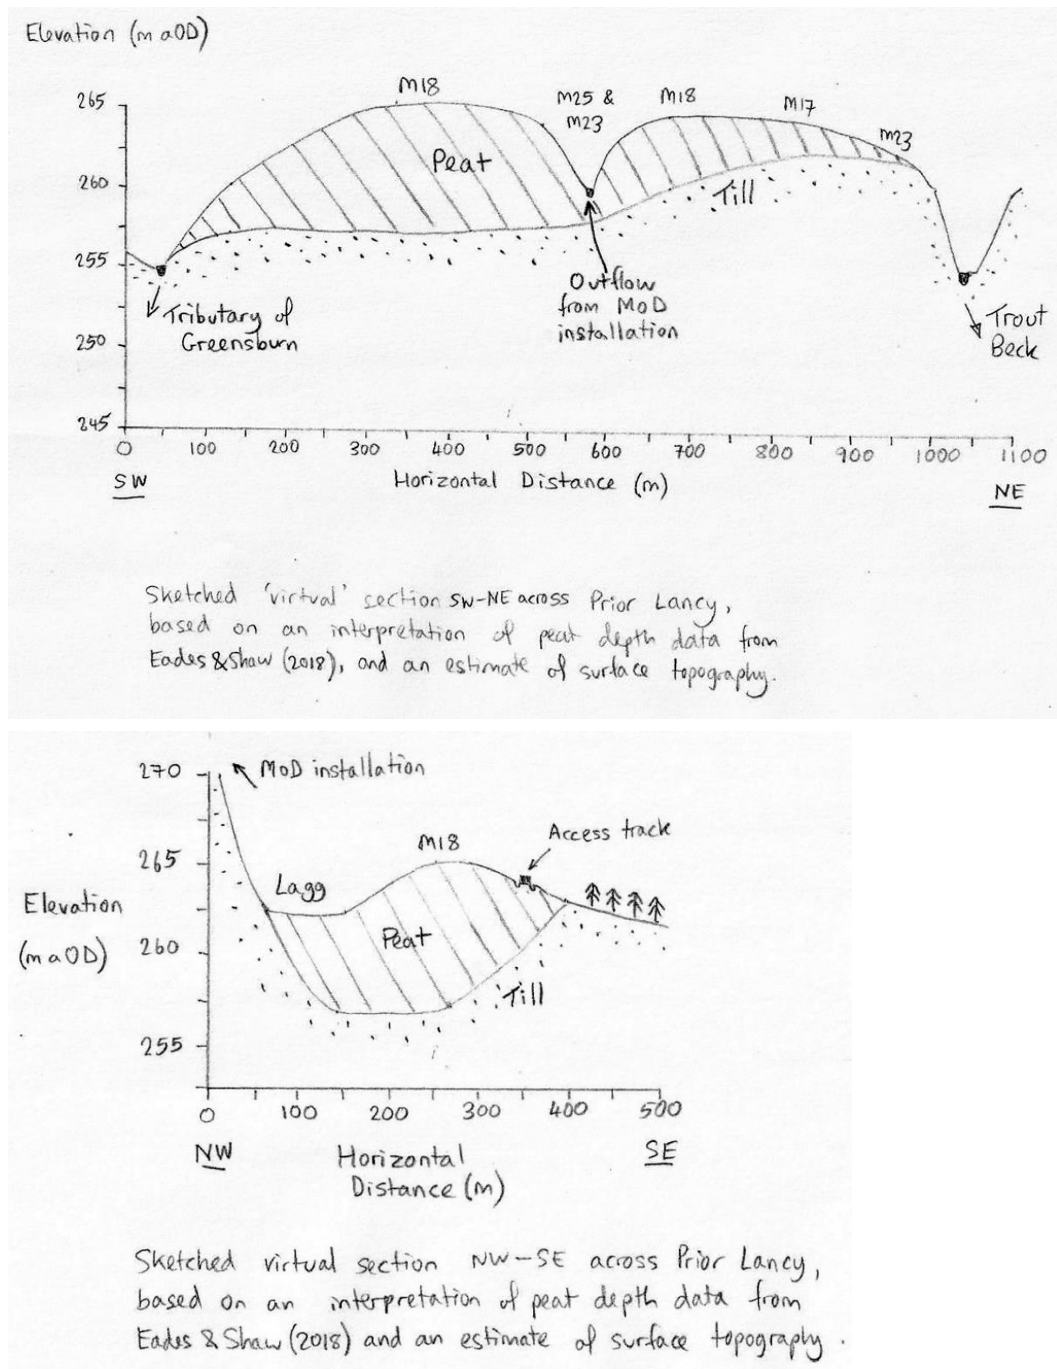 Elevation (m aOD)
M18
M25 &
M23
M18
M17
M23
265
260
255
250
245
Peat
Till
Tributary of
Greensburn
Outflow
from MoD
installation
Trout
Beck
0 100 200 300 400 500 600 700 800 900 1000 1100
SW
Horizontal Distance (m)
NE
Sketched 'virtual' section SW-NE across Prior Lancy,
based on an interpretation of peat depth data from
Eades & Shaw (2018), and an estimate of surface topography.
270
MoD installation
M18
Access track
265
Lagg
Elevation
(m aOD)
260
Peat
Till
255
0 100 200 300 400 500
NW
Horizontal
Distance (m)
SE
Sketched virtual section NW-SE across Prior Lancy,
based on an interpretation of peat depth data from
Eades & Shaw (2018) and an estimate of surface topography.